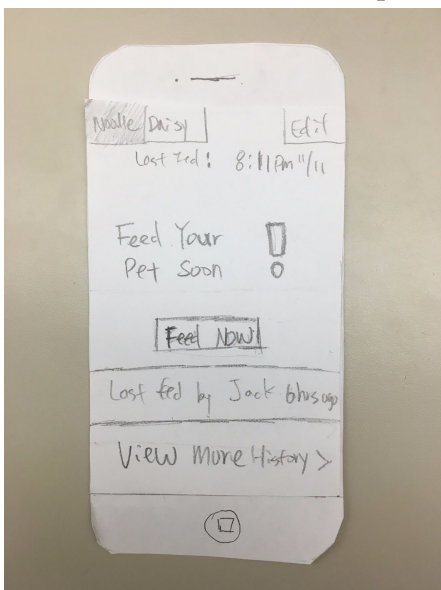 Noodle Daisy Edit
Last Fed: 8:11 PM 11/11
Feed Your
Pet Soon !
Feed Now
Last fed by Jack 6hrs ago
View More History >